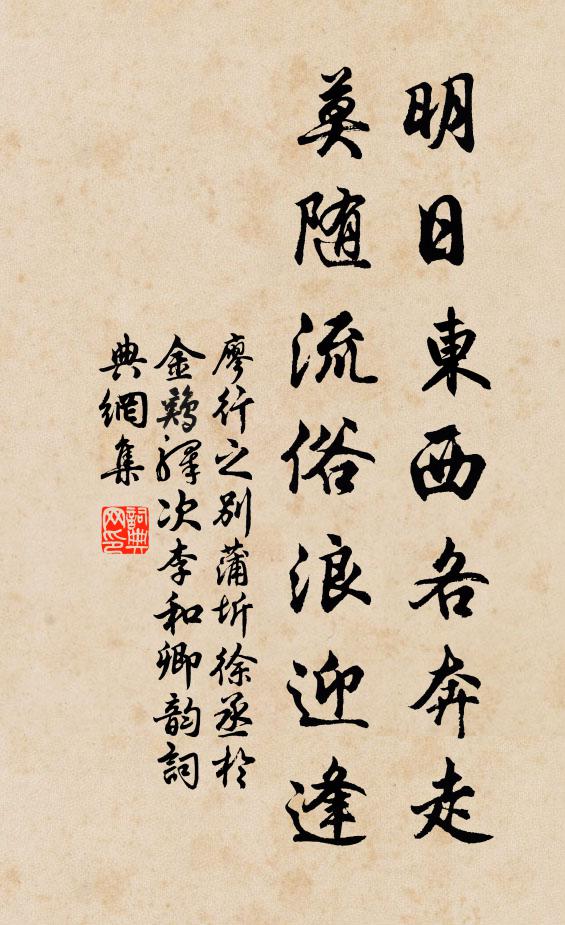 明日東西各奔走
莫随流俗浪迎逢
廖行之别蒲圻徐丞於
金鷄驛次李和卿韵詞
典網集
詞典网印